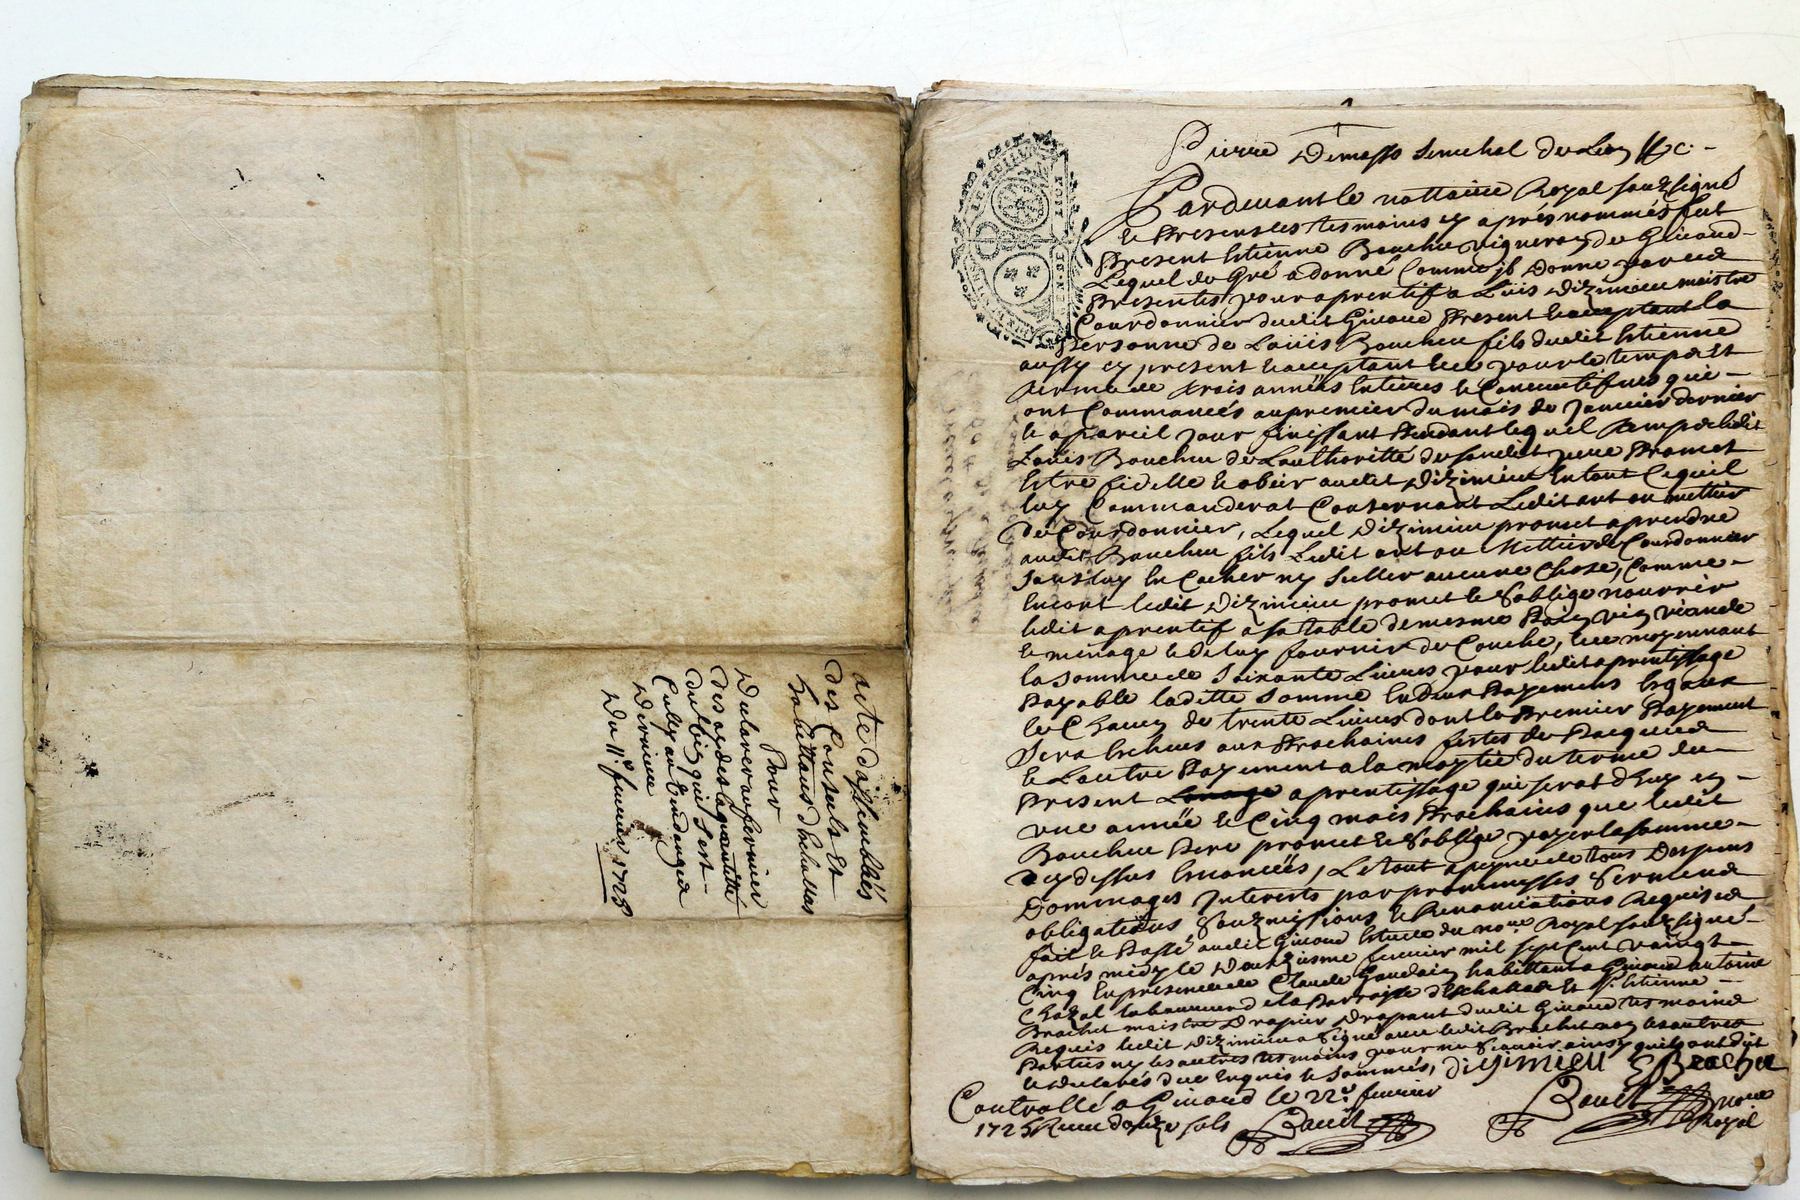 acte dassemblées
des Consuls et
habittans dechallas
Pour
Declarer au fermier
des aydes la quantitté
du vin quil sest
Cully au vendanges
Derniere
Du 11e. feurier 1725
Pierre Demasso senechal de Lion &c.
Pardeuant le nottaire Royal souzsigné
et Presens les tesmoins cy aprés nommés fut
Present Estienne Boucheu vigneron de Giuord
Lequel de Gré a donné Comme il Donne par ces
Presentes pour aprentif a Loüis Dizimieu maistre
Courdonnier dudit Giuord Present et acceptant la
Personne de Loüis Boucheu fils dudit Estienne
aussy cy present et acceptant et ce pour le temps et
terme de trois années Entieres et Consecutifues qui
ont Commancés au premier du mois de Januier dernier
et a pareil jour finissant Pendant lequel temps ledit
Loüis Boucheu de Lauthoritté de sondit pere Promet
Estre fidelle et obeir audit Dizimieu En tout Ce quil
luy Commanderat Consernant Ledit art ou mettier
de Courdonnier, Lequel Dizimieu promet aprendre
audit Boucheu fils Ledit art ou Mettier de Courdonnier
sans luy En Cacher ny Seller aucune Chose, Comme
Encore ledit Dizimieu promet et Soblige nourrir
ledit aprentif a sa table de mesme Pain vin viande
et menage et de luy fournir de Couche, et ce moyennant
la somme de Soixante Liures pour ledit aprentissage
Payable laditte somme En deux Payemens Esgaux
et Chacun de trente Liures dont le Premier Payement
Sera Escheus aux Prochaines festes de Pasques
et Lautre Payement a la moytié du terme du
Present aprentissage qui serat dhuy en
vne année et Cinq mois Prochains que ledit
Boucheu Pere promet et Soblige payer la somme
Cy dessus Enoncéës, Le tout a peyne de tous Despens
Dommages Interests par prommesses Sermens
obligations Souzmissions et Renonciations Requises
fait et Passé audit Giuord Estude du nore. Royal souzsigné
aprés midy le Douziesme feurier mil sept Cent vaingt
Cinq En presence de Claude Gaudin habittant a Giuord antoine
Chazal laboureur de la Parroisse dEschallas Et Sr. Etienne
Brachet maistre Drapier Drapant dudit Giuord tesmoins
Requis ledit Dizimieu a Signé auec ledit Brachet non les autres
Parties ny les autres tesmoins pour ne Scauoir ainsy quils ont dit
et declarés de ce Enquis et Sommés, digimieu E Brachet
Controllé a Giuord le 22e. feurier
1725 Receu douze sols Bouët
Bouët nore
Royal